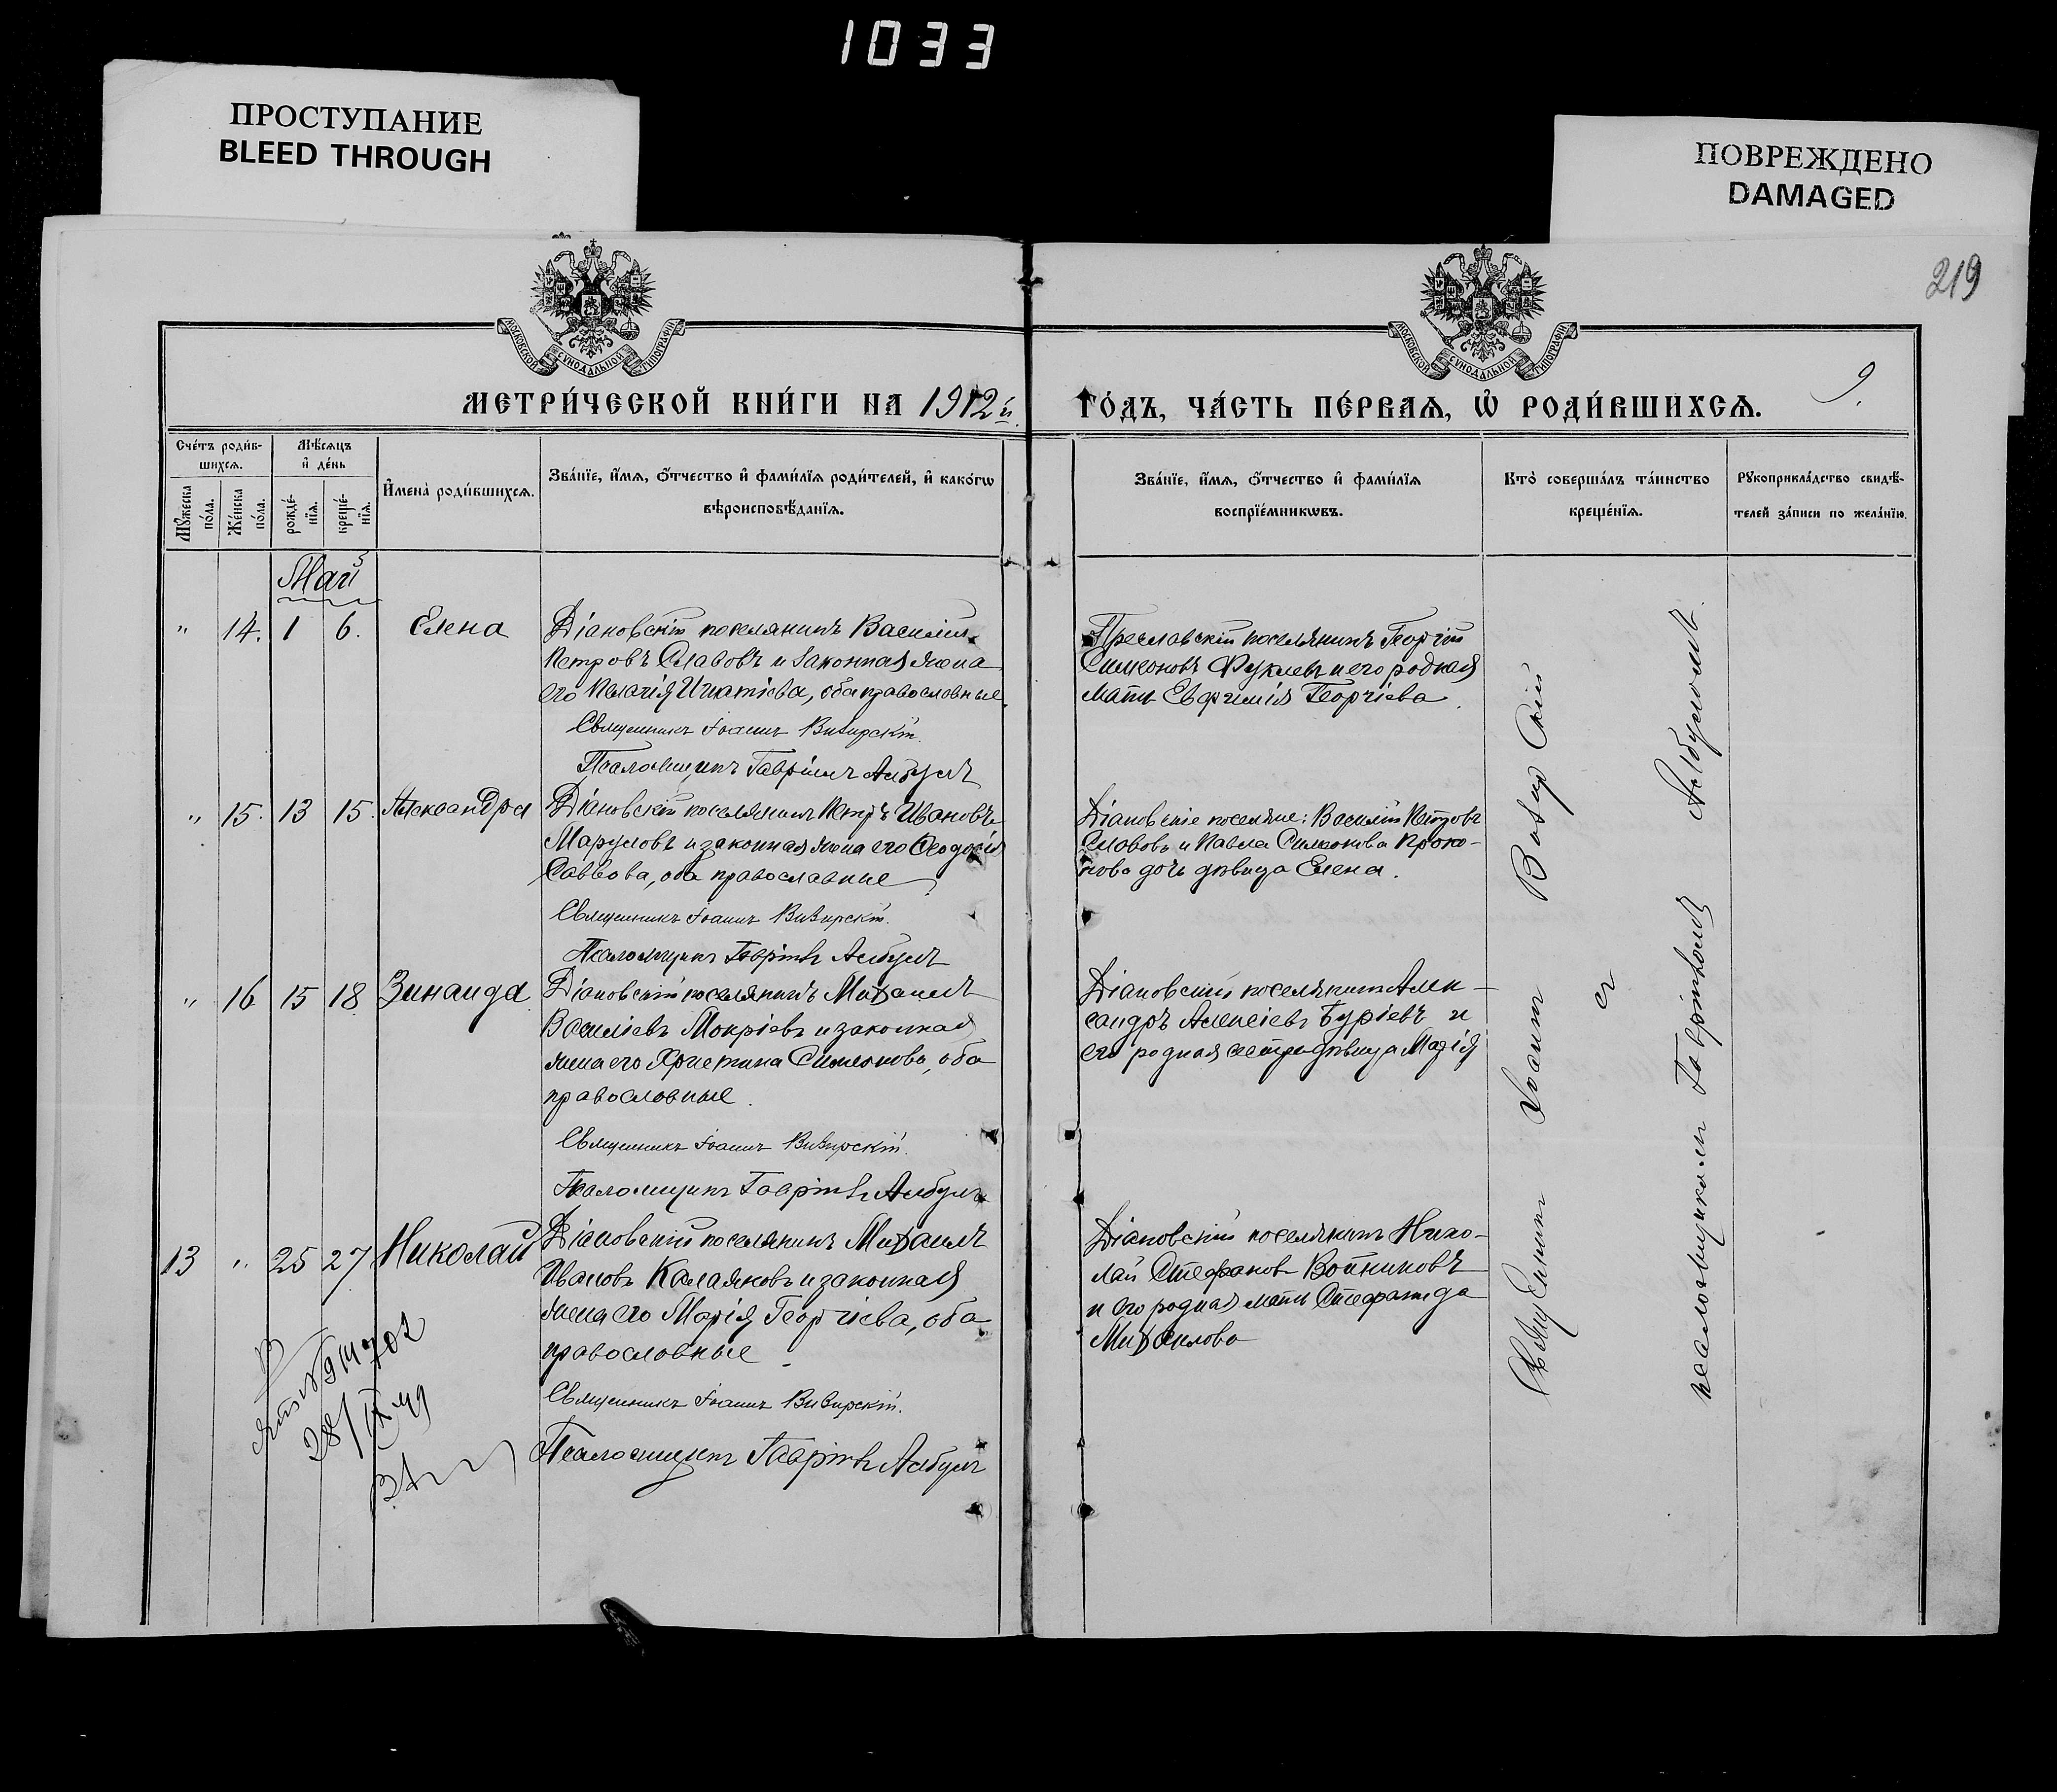 1033
ПРОСТУПАНИЕ
BLEED THROUGH
ПОВРЕЖДЕНО
DAMAGED
219
МОСКОВСКОЙ СѴНОДАЛЬНОЙ ТИПОГРАФІИ
МОСКОВСКОЙ СѴНОДАЛЬНОЙ ТИПОГРАФІИ
МЕТРИ́ЧЕСКОЙ КНИ́ГИ НА 1912й
ГО́ДЪ, ЧА́СТЬ ПЕ́РВАѦ, Ѡ҆ РОДИ́ВШИХСѦ.
9.
Сче́тъ роди́в-
шихсѧ.
Мѣ́сѧцъ
и҆ де́нь
Мꙋ́жеска
по́ла.
Же́нска
по́ла.
рожде́-
нїѧ.
креще́-
нїѧ.
И҆мена̀ роди́вшихсѧ.
Зва́нїе, и҆́мѧ, ѻ҆́тчество и҆ фами́лїѧ роди́телей, и҆ како́гѡ
вѣроисповѣ́данїѧ.
Зва́нїе, и҆́мѧ, ѻ҆́тчество и҆ фами́лїѧ
воспрїе́мникѡвъ.
Кто̀ соверша́лъ та́инство
креще́нїѧ.
Рꙋкоприкла́дство свидѣ́-
телей за́писи по жела́нїю.
Май
" 14. 1 6. Елена
Діановскій поселянинъ Василій
Петровъ Славовъ и законная жена
его Пелагія Игнатіева, оба православные.
Священникъ Іоаннъ
Псаломщикъ Гавріилъ Албулъ
Преславскій поселянинъ Георгій
Симеоновъ и его родная
мать Евфимія Георгіева.
" 15. 13 15. Александра
Діановскій поселянинъ Петръ Ивановъ
Маруловъ и законная жена его Ѳеодосія
Саввова, оба православные
Священникъ Іоаннъ
Псаломщикъ Гавріилъ Албулъ
Діановскіе поселяне: Василій Петровъ
Славовъ и Павла Симеонова Проко-
пова дочь дѣвица Елена.
" 16 15 18 Зинаида
Діановскій поселянинъ Михаилъ
Василіевъ Мокріевъ и законная
жена его Христина Симеонова, оба
православные.
Священникъ Іоаннъ
Псаломщикъ Гавріилъ Албулъ
Діановскій поселянинъ Алек-
сандръ Алексіевъ Буріевъ и
его родная сестра дѣвица Марія
13 " 25 27 Николай
Діановскій поселянинъ Михаилъ
Ивановъ Калаяновъ и законная
жена его Марія Георгіева, оба
православные.
Священникъ Іоаннъ
Псаломщикъ Гавріилъ Албулъ
Діановскій поселянинъ Нико-
лай Стефановъ Войниковъ
и его родная мать Стефанида
Михаилова
28/IX 49
Священникъ Іоаннъ
съ
псаломщикомъ Гавріиломъ Албуломъ.